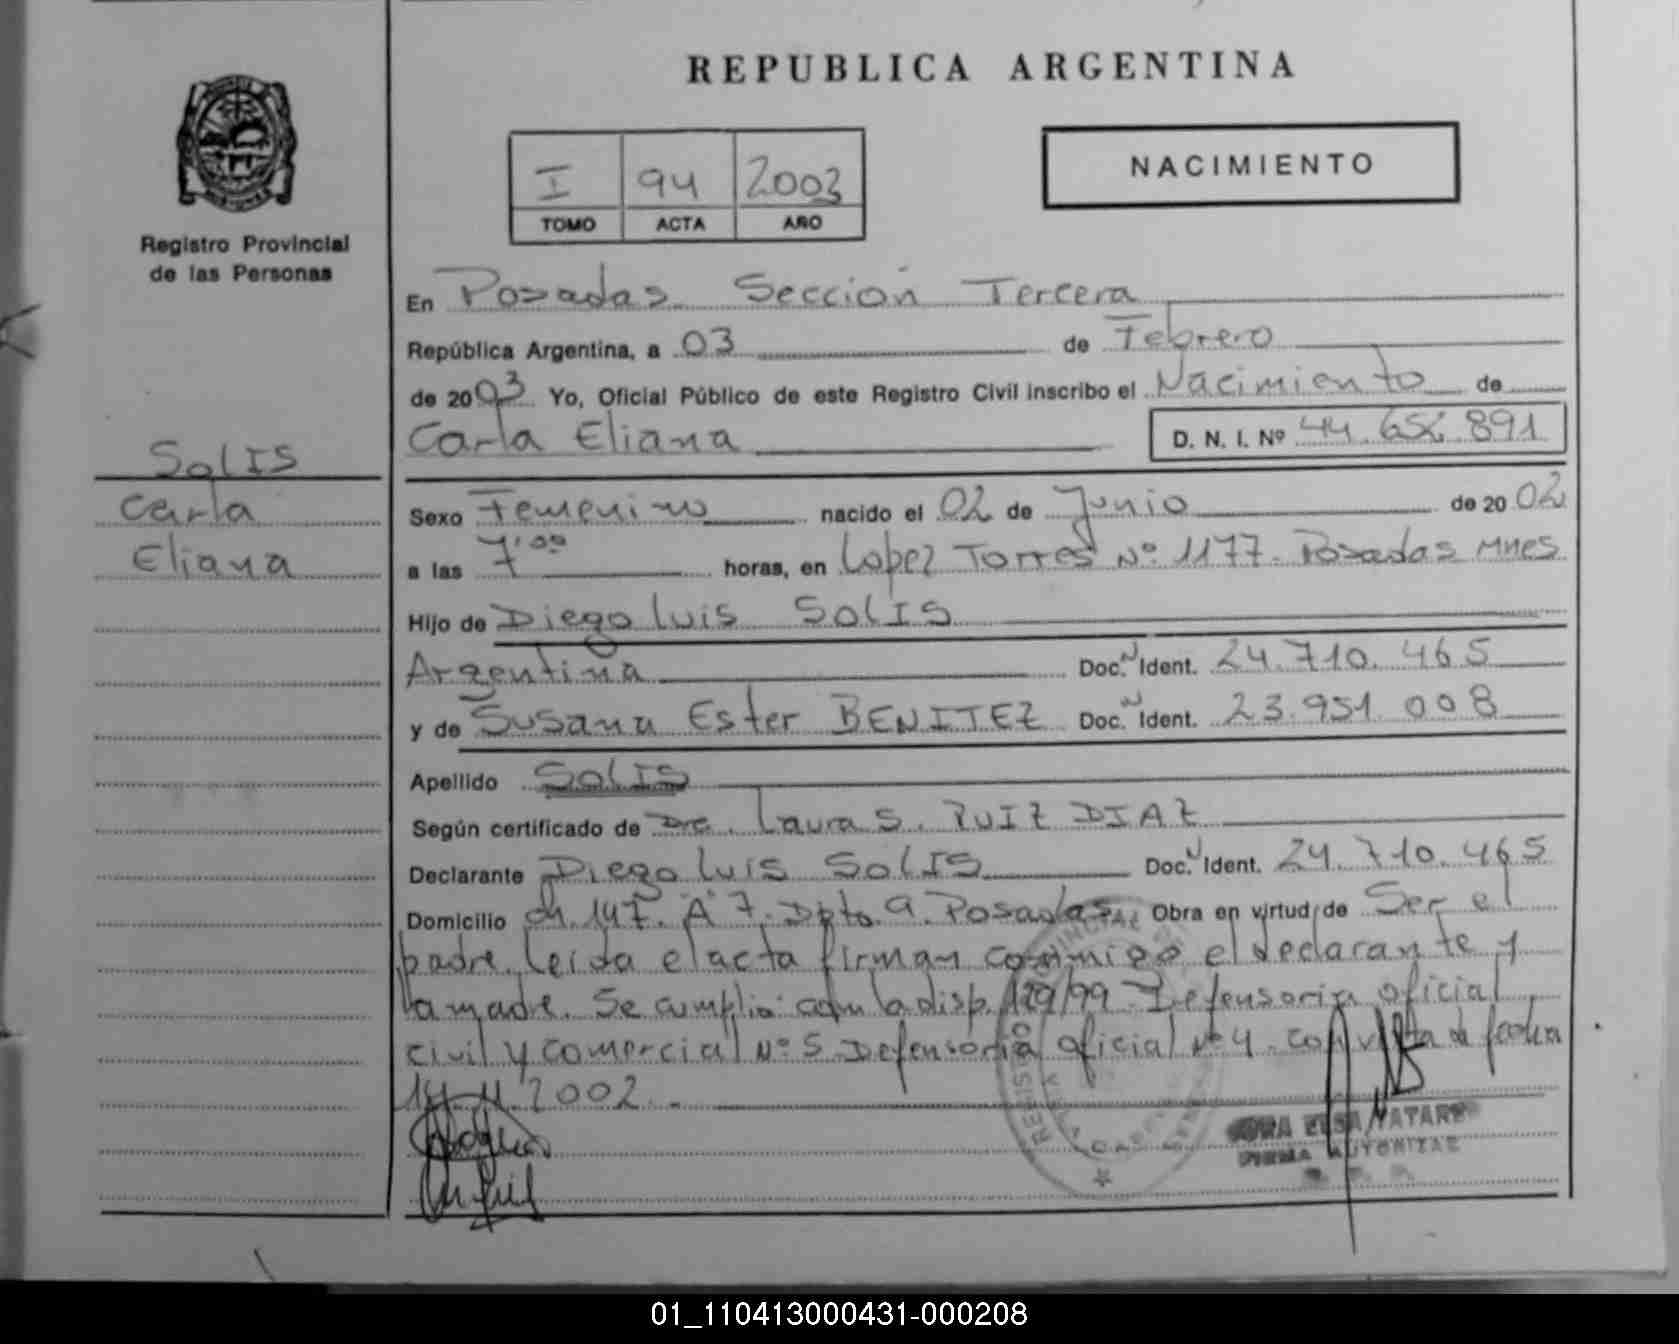 REPUBLICA ARGENTINA
I 94 2003
TOMO ACTA AÑO
NACIMIENTO
Registro Provincial
de las Personas
En Posadas Sección Tercera
República Argentina, a 03 de Febrero
de 2003 Yo, Oficial Público de este Registro Civil inscribo el Nacimiento de
Carla Eliana D. N. I. Nº 44.656.891
SOLIS
Carla
Eliana
Sexo Femenino nacido el 02 de Junio de 2002
a las 7'00 horas, en Lopez Torres Nº 1177. Posadas Mnes
Hijo de Diego Luis SOLIS
Argentina Doc. N Ident. 24.710.465
y de Susana Ester BENITEZ Doc. N Ident. 23.951.008
Apellido SOLIS
Según certificado de Dra. Laura S. RUIZ DIAZ
Declarante Diego Luis SOLIS Doc. N Ident. 24.710.465
Domicilio Ch. 147. A 7. Dpto. 9. Posadas. Obra en virtud de Ser el
padre. Leida el acta firman conmigo el declarante y
la madre. Se cumplio con la disp. 129/99 Defensoria oficial
civil y comercial Nº 5 Defensoria oficial Nº 4. con vista de fecha
14.11.2002.
REGISTRO
FIRMA AUTORIZAD
01_110413000431-000208